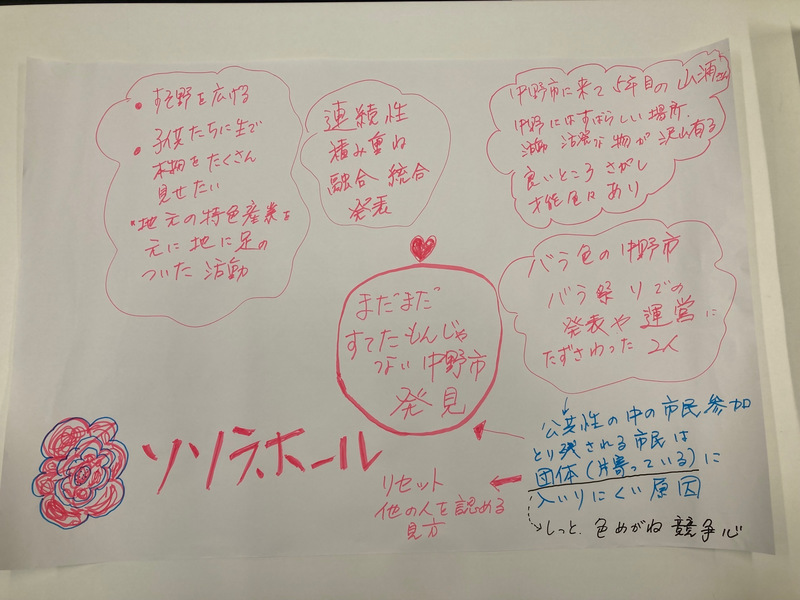 • すそ野を広げる
• 子供たちに生で
本物をたくさん
見せたい
• 地元の特色産業を
元に地に足の
ついた 活動
連続性
積み重ね
融合 統合
発表
中野市に来て 5年目の 山浦さん
中野にはすばらしい場所、
活動 活発な 物が 沢山有る
良いところ さがし
才能色々 あり
バラ色の中野市
バラ祭りでの
発表や 運営に
たずさわった 2人
まだまだ
すてたもんじゃ
ない 中野市
発見
公共性の中の市民参加
とり残される市民は
団体(片寄っている)に
入いりにくい原因
しっと、色めがね 競争心
リセット
他の人を認める
見方
ソソラホール